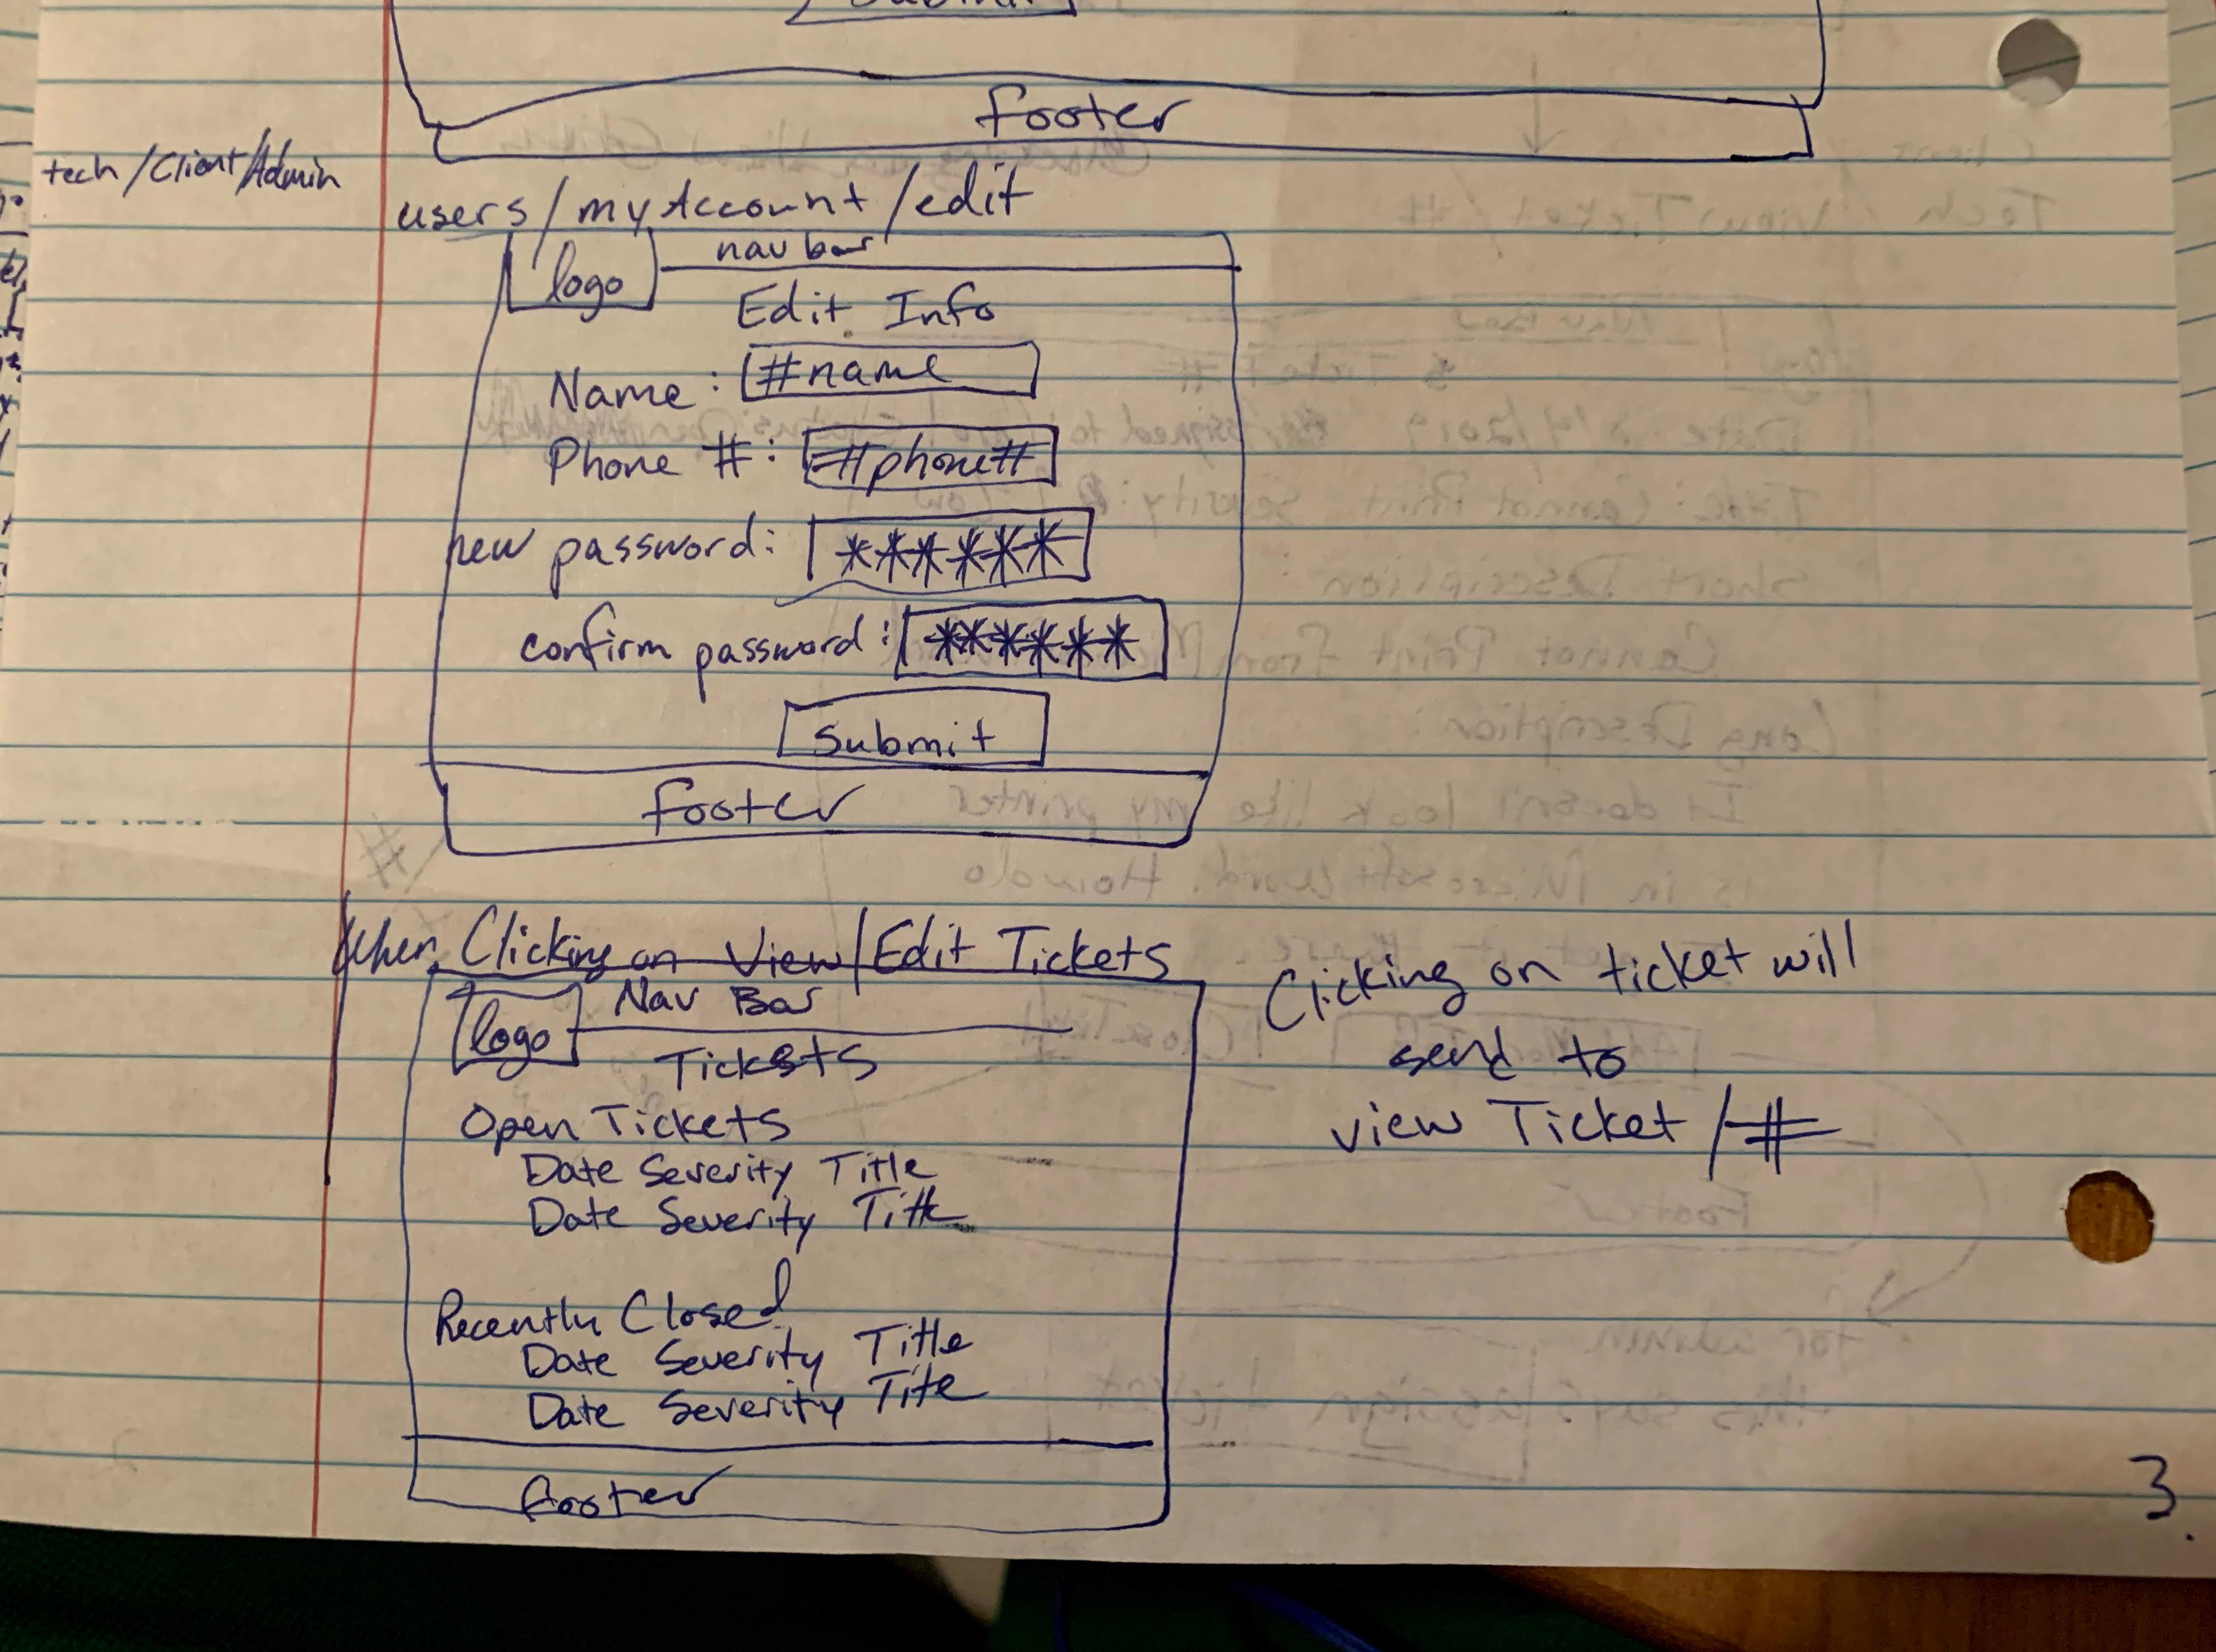 Submit
footer
tech/Client/Admin
users/myAccount/edit
nav bar
logo
Edit Info
Name: #name
Phone #: #phone#
new password: ******
confirm password: ******
Submit
footer
When Clicking on View/Edit Tickets
Nav Bar
logo
Tickets
Open Tickets
Date Severity Title
Date Severity Title
Recently Closed
Date Severity Title
Date Severity Title
footer
Clicking on ticket will
send to
view Ticket/#
3.